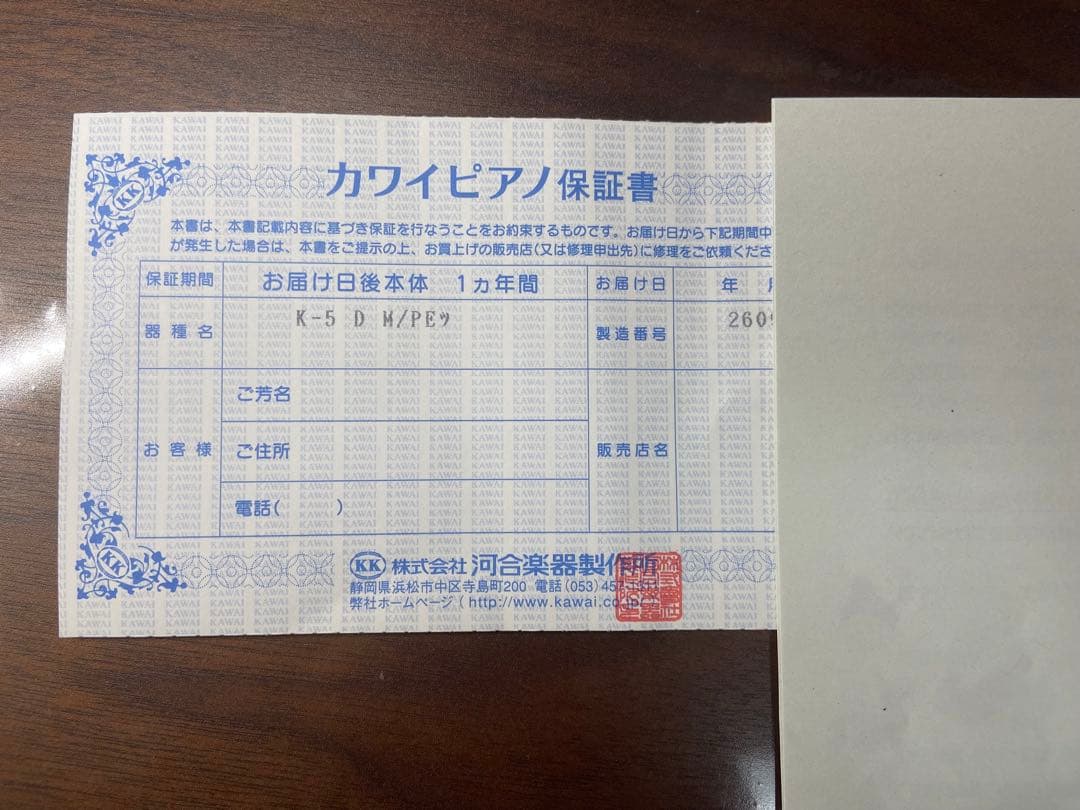 カワイピアノ保証書
本書は、本書記載内容に基づき保証を行なうことをお約束するものです。お届け日から下記期間中
が発生した場合は、本書をご提示の上、お買上げの販売店(又は修理申出先)に修理をご依頼くださ
保証期間 お届け日後本体 1ヵ年間 お届け日 年
器種名 K-5 D M/PEﾂ 製造番号 2609
お客様 ご芳名
ご住所 販売店名
電話( )
KK 株式会社 河合楽器製作所
静岡県浜松市中区寺島町200 電話(053)45
弊社ホームページ( http://www.kawai.co.jp
KK
KK